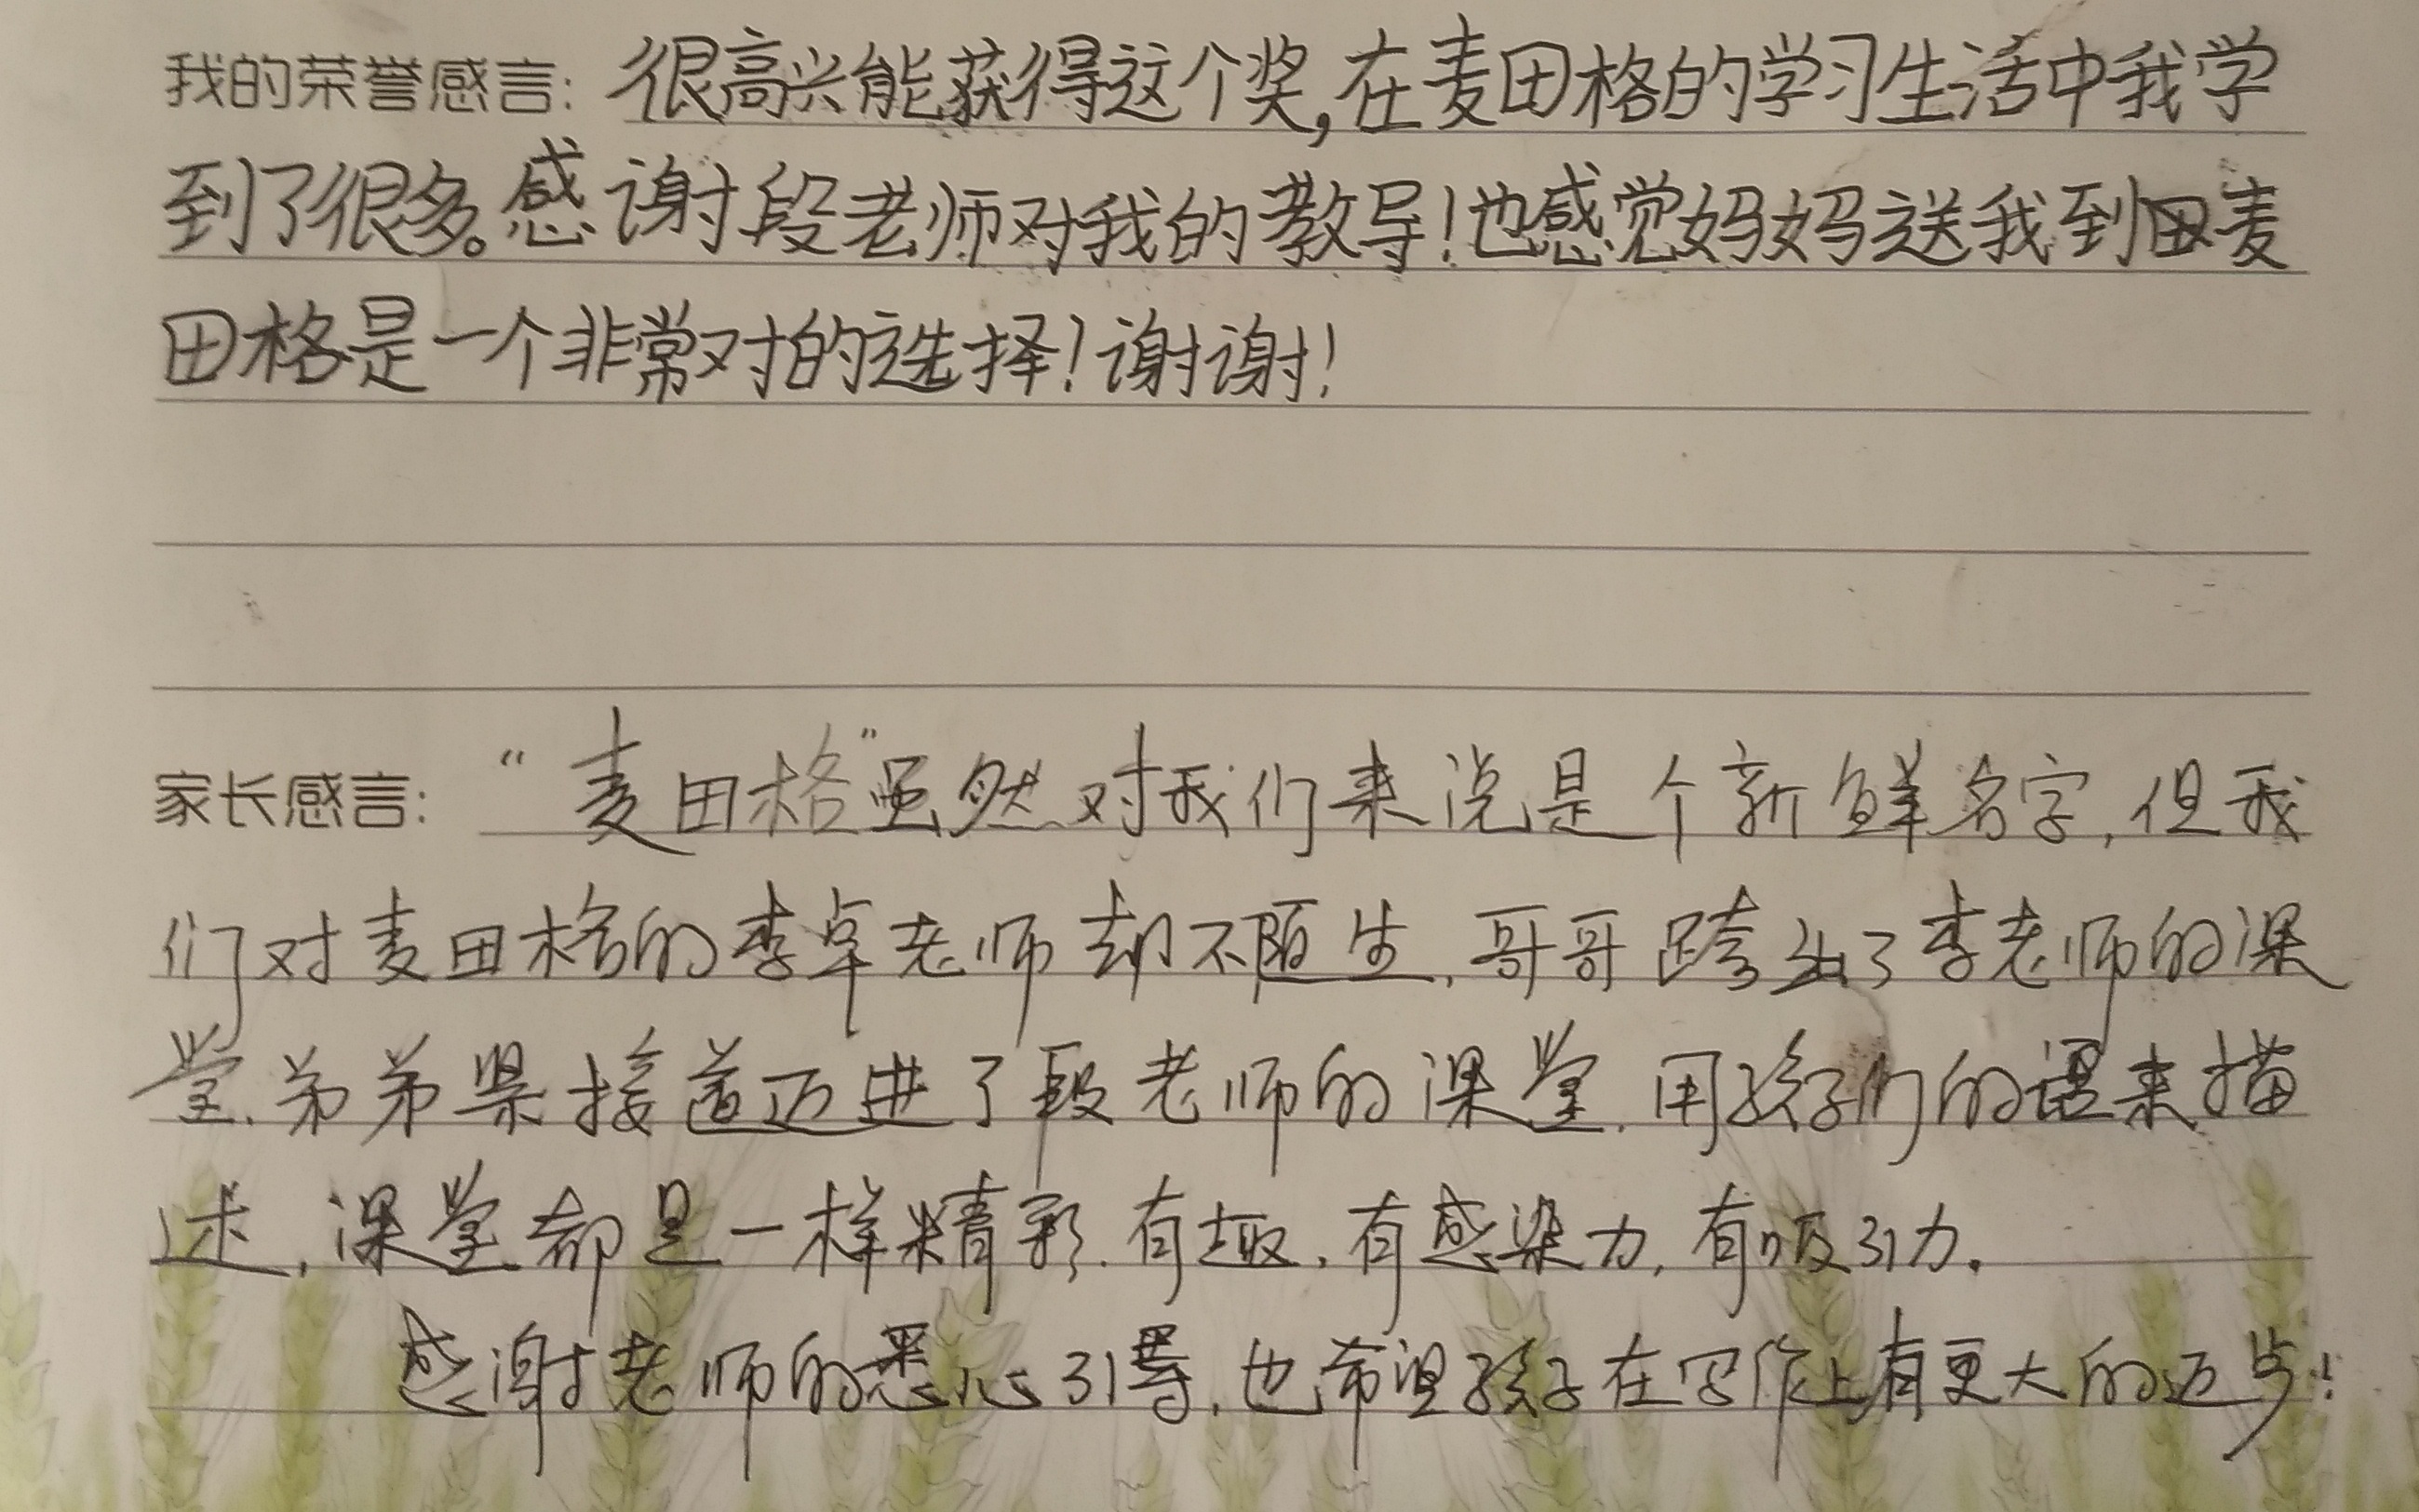 我的荣誉感言：很高兴能获得这个奖，在麦田格的学习生活中我学
到了很多。感谢段老师对我的教导！也感觉妈妈送我到田麦
田格是一个非常对的选择！谢谢！
家长感言：“麦田格”虽然对我们来说是个新鲜名字，但我
们对麦田格的李卓老师却不陌生，哥哥跨出了李老师的课
堂，弟弟紧接着迈进了段老师的课堂，用孩子们的语来描
述，课堂都是一样精彩，有趣，有感染力，有吸引力。
感谢老师的悉心引导，也希望孩子在写作上有更大的迈步！